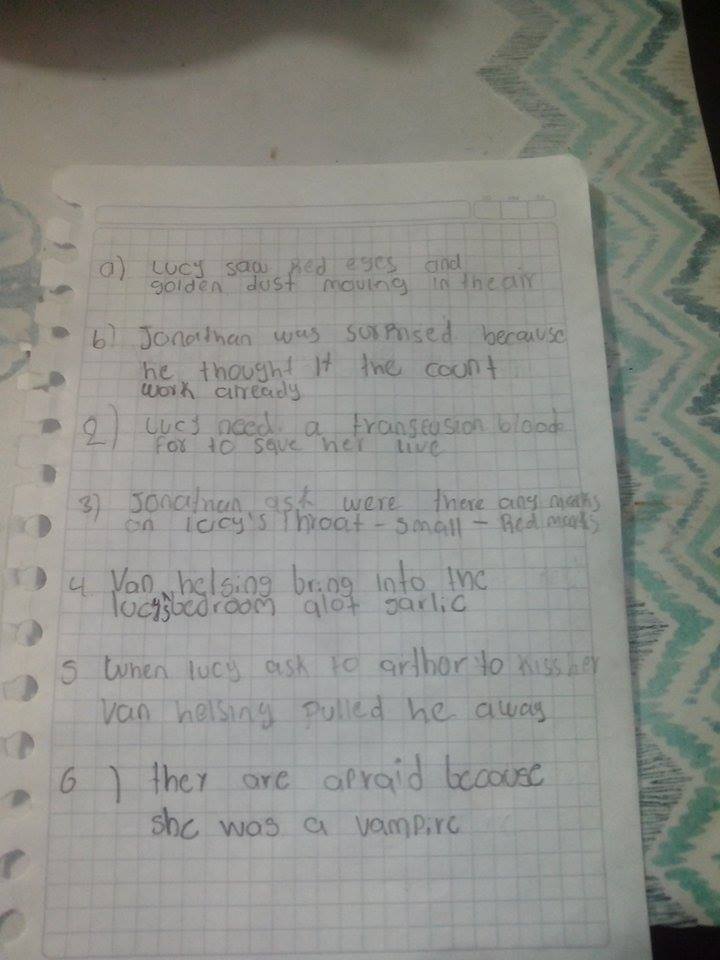 a) Lucy saw Red eyes and
golden dust moving in the air
b) Jonathan was surprised because
he thought It the count
work already
2) Lucy need a transfusion blood
for to save her live
3) Jonathan ask were there any marks
on lucy's throat - small - Red marks
4 Van helsing bring into the
lucy's bedroom alot garlic
5 When lucy ask to arthor to kiss her
van helsing pulled he away
6) they are apraid because
she was a vampire